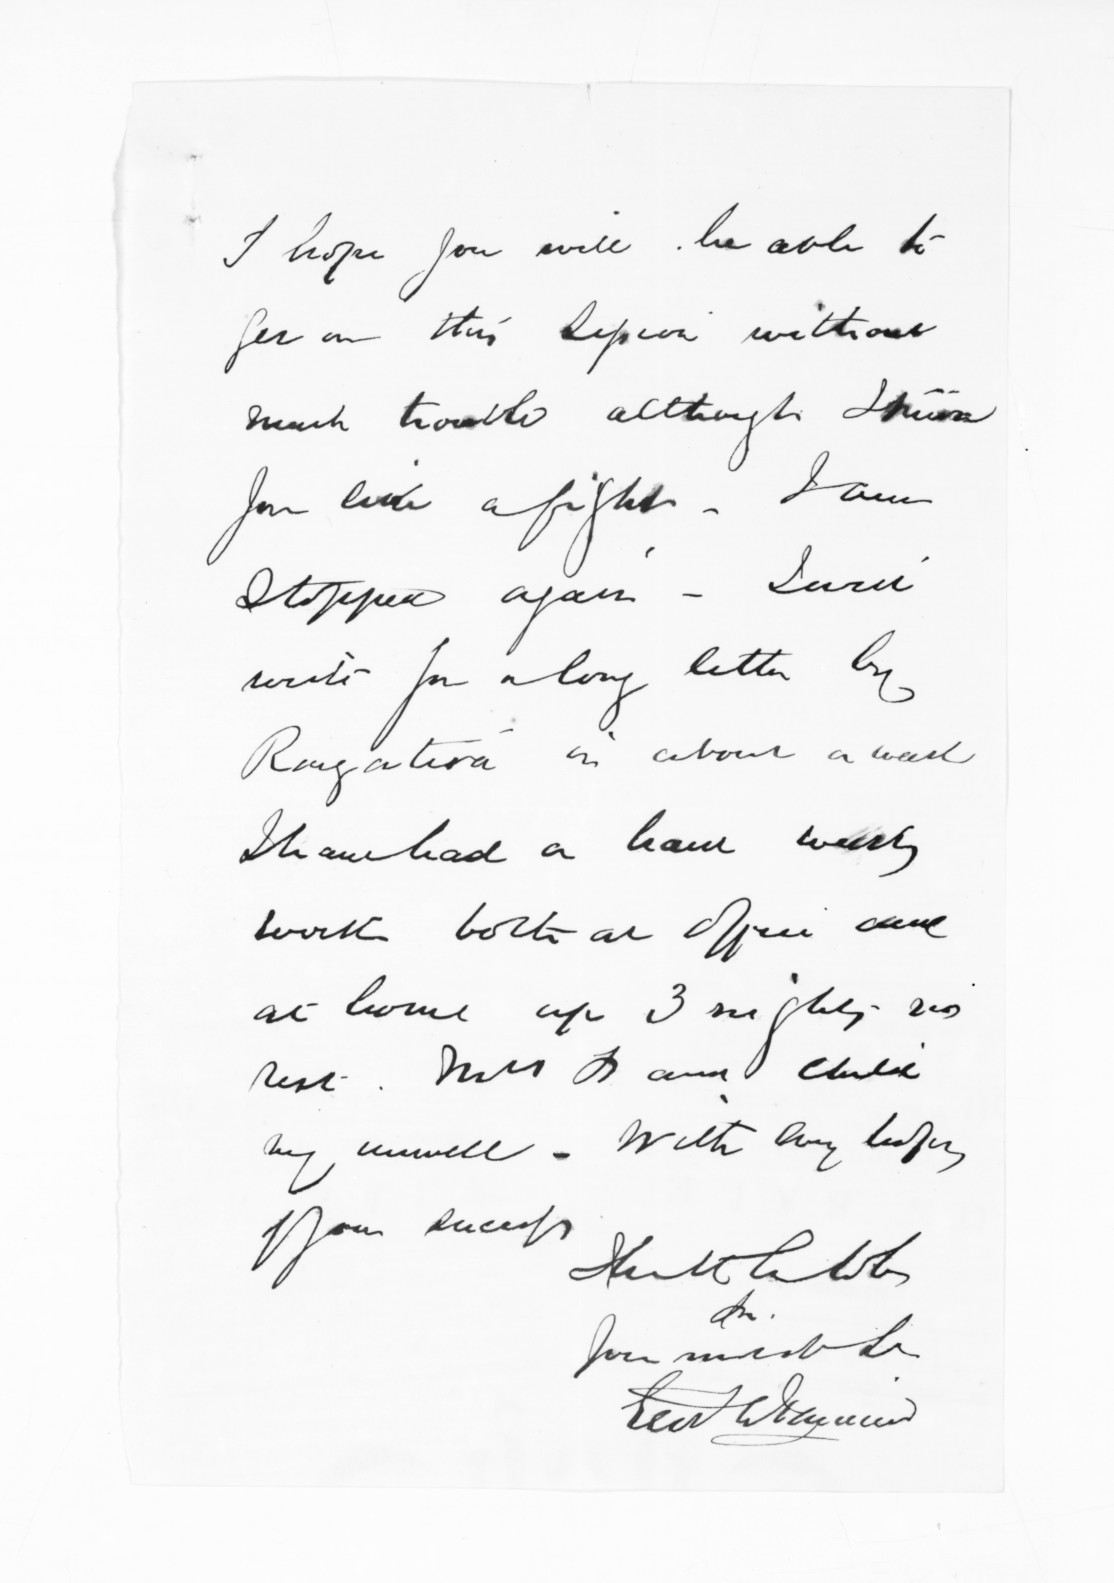 I hope you will be able to
get on this Session without
much trouble although I know
you like a fight - I am
stopped again - I will
write you a long letter by
Rangatira in about a week
I have had a hard weeks
work both at Office and
at home up 3 nights no
rest. Mrs and child
very unwell - With every hope
of your success
I have the
Sir
Your most